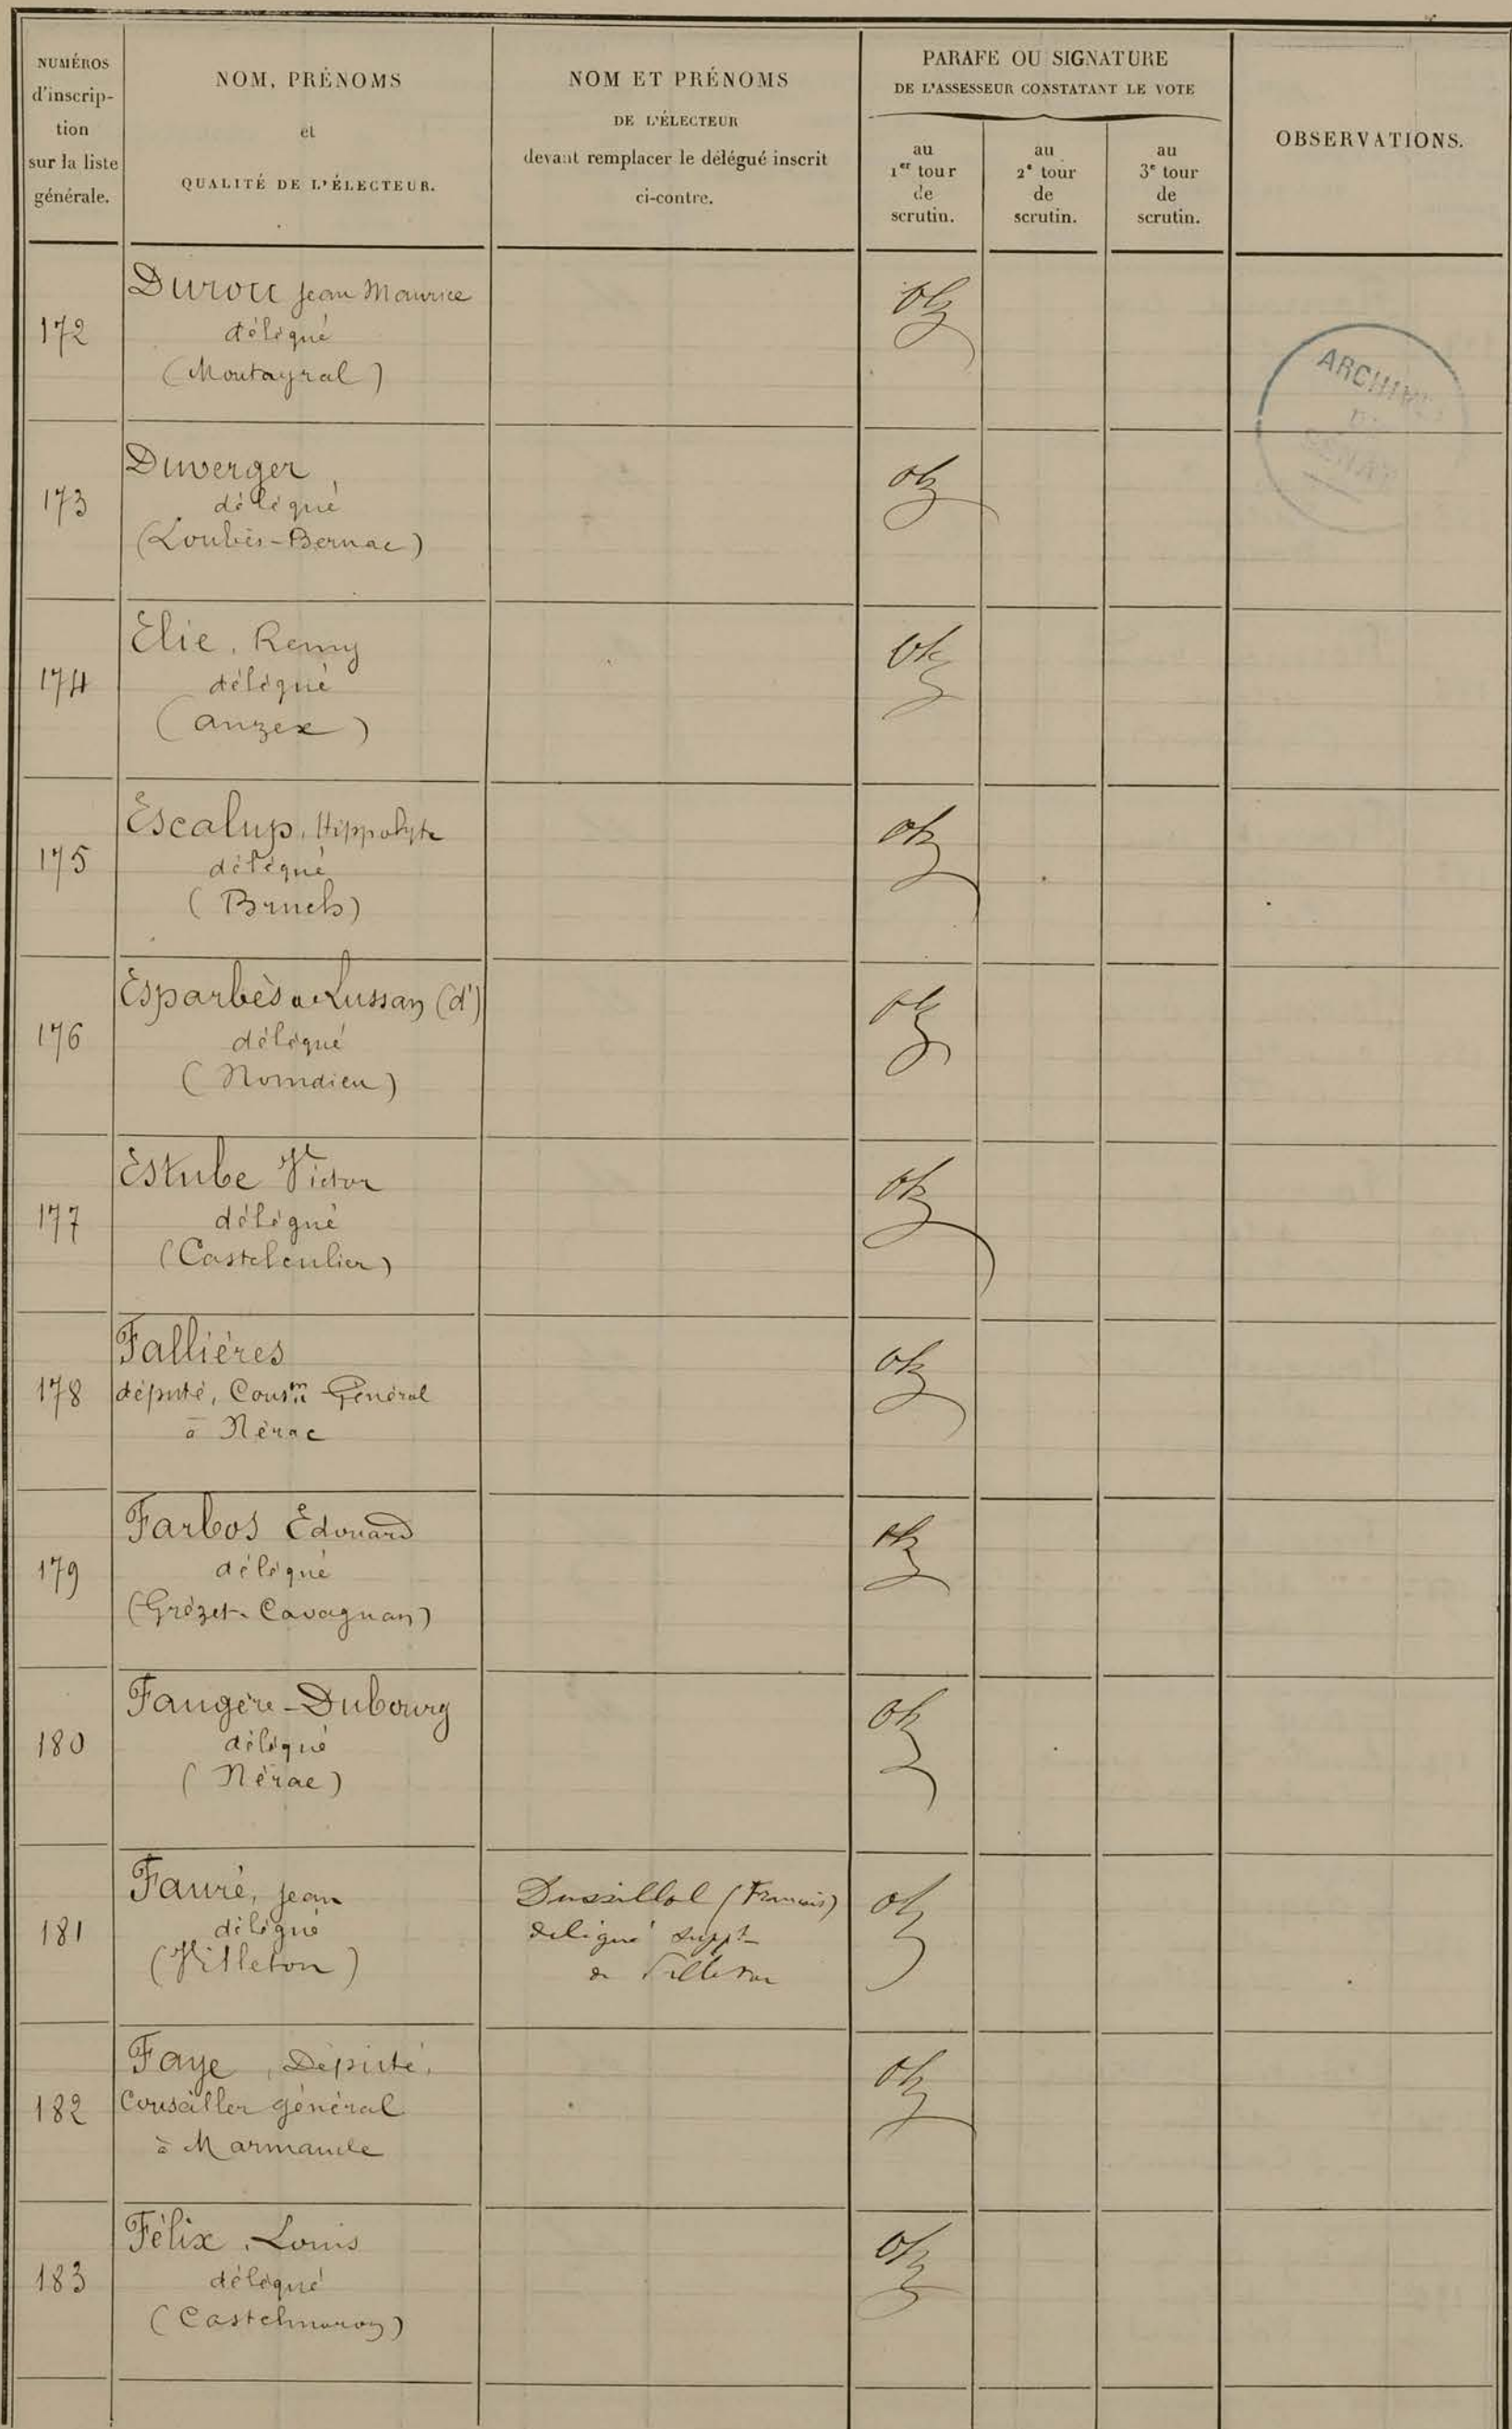 NUMÉROS
d'inscrip-
tion
sur la liste
générale.
NOM, PRÉNOMS
et
QUALITÉ DE L'ÉLECTEUR.
NOM ET PRÉNOMS
DE L'ÉLECTEUR
devant remplacer le délégué inscrit
ci-contre.
PARAFE OU SIGNATURE
DE L'ASSESSEUR CONSTATANT LE VOTE
au
1er tour
de
scrutin.
au
2e tour
de
scrutin.
au
3e tour
de
scrutin.
OBSERVATIONS.
172
Durou Jean Maurice
délégué
(Montayral)
ARCHIVES
173
Duverger
délégué
(Loubès-Bernac)
174
Elie, Remy
délégué
(anzex)
175
Escalup, Hippolyte
délégué
(Bruch)
176
Esparbès de Lussan (d')
délégué
(Nomdieu)
177
Estube Victor
délégué
(Castelculier)
178
Fallières
député, Cons Général
à Nérac
179
Farbos Édouard
délégué
(Grézet-Cavagnan)
180
Faugère-Dubourg
délégué
(Nérac)
181
Fauré, Jean
délégué
(Villeton)
(François)
délégué suppt
de Villeton
182
Faye, Député,
Conseiller général
à Marmande
183
Félix, Louis
délégué
(Castelmoron)